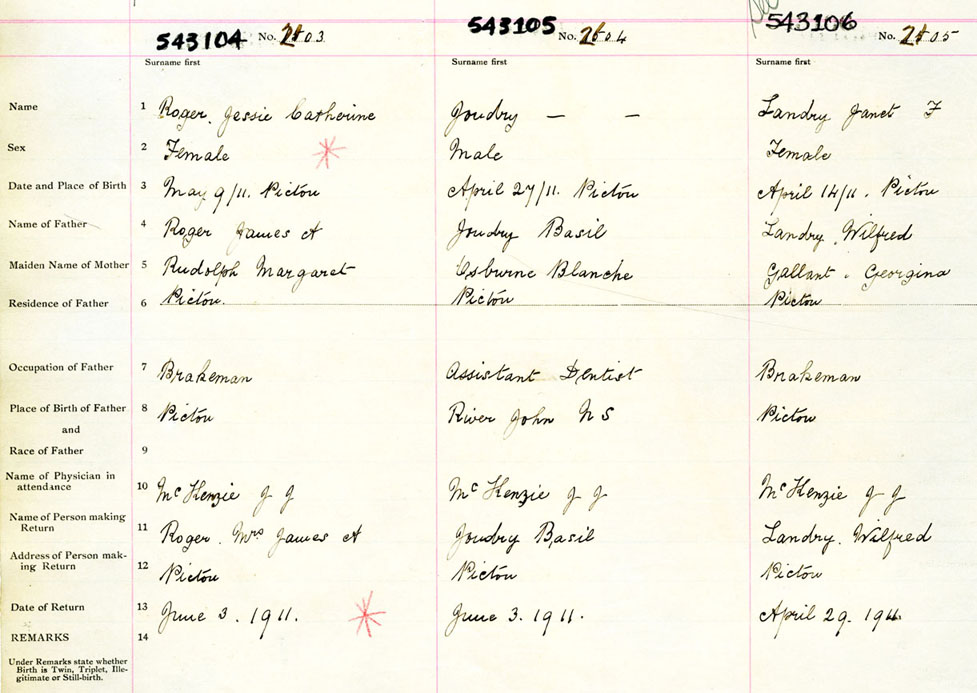 543104 No. 2503 543105 No. 2504 543106 No. 2505
Surname first Surname first Surname first
Name 1 Roger, Jessie Catherine Joudry — — Landry Janet F
Sex 2 Female Male Female
Date and Place of Birth 3 May 9/11. Pictou April 27/11. Pictou April 14/11. Pictou
Name of Father 4 Roger James A Joudry Basil Landry, Wilfred
Maiden Name of Mother 5 Rudolph Margaret Osburne Blanche Gallant. Georgina
Residence of Father 6 Pictou. Pictou Pictou
Occupation of Father 7 Brakeman Assistant Dentist Brakeman
Place of Birth of Father 8 Pictou River John N S Pictou
and
Race of Father 9
Name of Physician in
attendance 10 McKenzie J J McKenzie J J McKenzie J J
Name of Person making
Return 11 Roger. Mrs James A Joudry Basil Landry. Wilfred
Address of Person mak-
ing Return 12 Pictou Pictou Pictou
Date of Return 13 June 3. 1911. June 3. 1911. April 29. 1911.
REMARKS 14
Under Remarks state whether
Birth is Twin, Triplet, Ille-
gitimate or Still-birth.